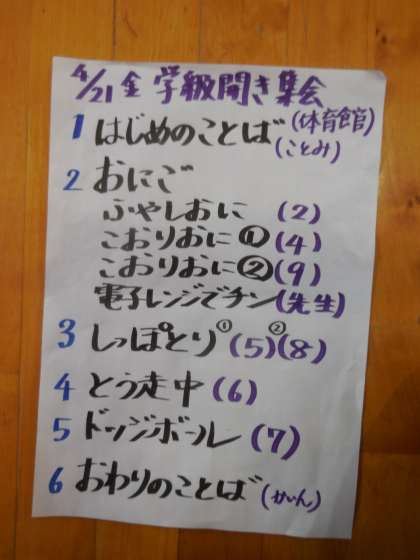 4/21 金 学級開き集会
1 はじめのことば (体育館)
(ことみ)
2 おにご
ふやしおに (2)
こおりおに① (4)
こおりおに② (9)
電子レンジでチン (先生)
3 しっぽとり ①(5) ②(8)
4 とう走中 (6)
5 ドッジボール (7)
6 おわりのことば (かいん)